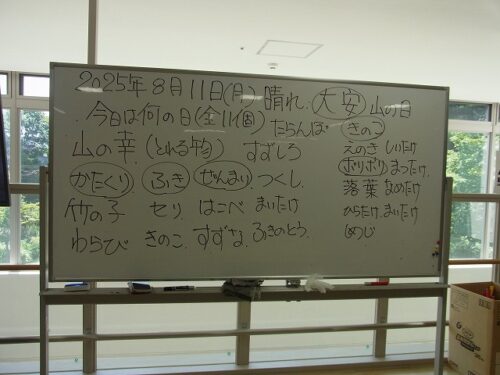 2025年8月11日(月) 晴れ. 大安 山の日
今日は何の日(全11個) たらんぼ きのこ
山の幸 (とれる物) すずしろ
かたくり ふき ぜんまい つくし.
竹の子 セリ. はこべ まいたけ
わらび きのこ. すずな. ふきのとう.
えのき しいたけ
ボリボリ まつたけ.
落葉 なめたけ
ひらたけ. まいたけ
しめじ